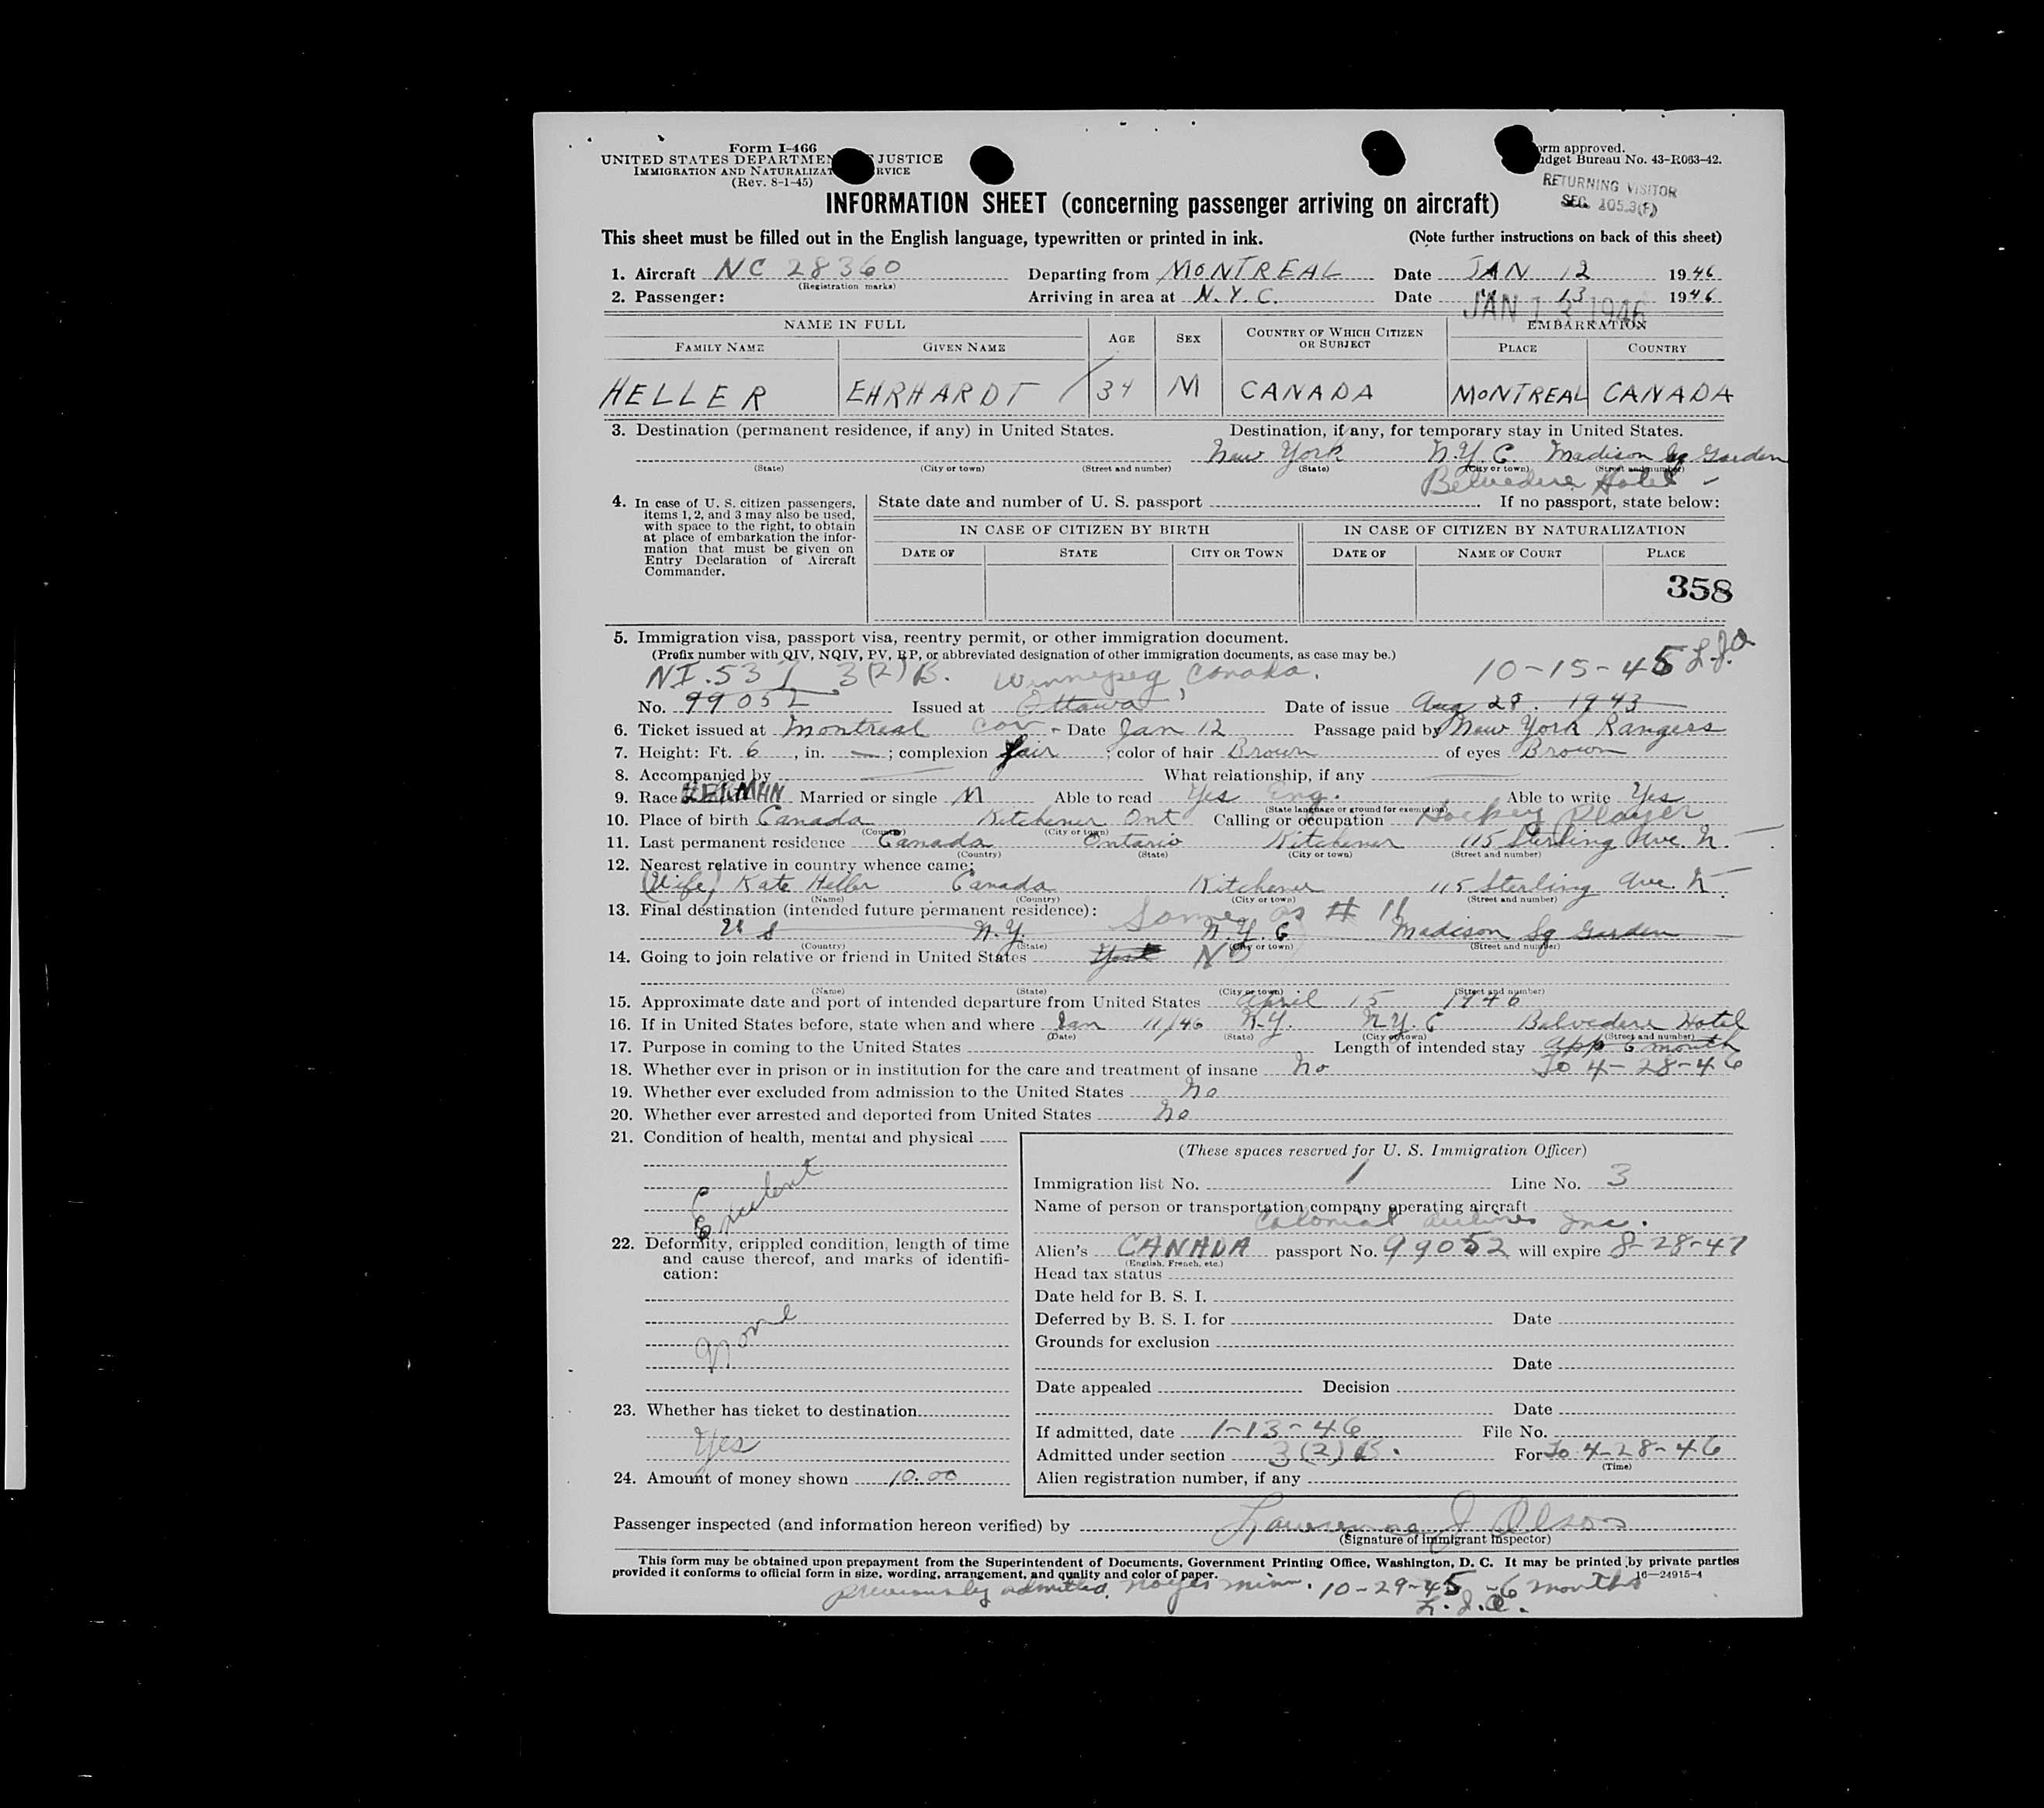 Form I-466
UNITED STATES DEPARTMENT JUSTICE
IMMIGRATION AND NATURALIZAT RVICE
(Rev. 8-1-45)
orm approved.
dget Bureau No. 43-R063-42.
RETURNING VISITOR
SEC. 105.3(F)
INFORMATION SHEET (concerning passenger arriving on aircraft)
This sheet must be filled out in the English language, typewritten or printed in ink. (Note further instructions on back of this sheet)
1. Aircraft NC 28360 Departing from MONTREAL Date JAN 12 1946
(Registration marks)
2. Passenger: Arriving in area at N.Y.C. Date " 13 1946
JAN 13 1946
NAME IN FULL AGE SEX COUNTRY OF WHICH CITIZEN OR SUBJECT EMBARKATION
FAMILY NAME GIVEN NAME PLACE COUNTRY
HELLER EHRHARDT / 34 M CANADA MONTREAL CANADA
3. Destination (permanent residence, if any) in United States. Destination, if any, for temporary stay in United States.
New York N.Y.C Madison Sq Garden
(State) (City or town) (Street and number) (State) (City or town) (Street and number)
Belvedere Hotel -
4. In case of U. S. citizen passengers, items 1, 2, and 3 may also be used, with space to the right, to obtain at place of embarkation the information that must be given on Entry Declaration of Aircraft Commander.
State date and number of U. S. passport If no passport, state below:
IN CASE OF CITIZEN BY BIRTH IN CASE OF CITIZEN BY NATURALIZATION
DATE OF STATE CITY OR TOWN DATE OF NAME OF COURT PLACE
358
5. Immigration visa, passport visa, reentry permit, or other immigration document.
(Prefix number with QIV, NQIV, PV, RP, or abbreviated designation of other immigration documents, as case may be.)
NI.537 3(2)B. Winnepeg Canada. 10-15-45 L.J.O
No. 99052 Issued at Ottawa Date of issue Aug 28. 1943
6. Ticket issued at Montreal Can - Date Jan 12 Passage paid by New York Rangers
7. Height: Ft. 6, in. —; complexion fair; color of hair Brown of eyes Brown
8. Accompanied by — What relationship, if any —
9. Race GERMAN Married or single M Able to read Yes Eng. Able to write Yes
(State language or ground for exemption)
10. Place of birth Canada Kitchener Ont Calling or occupation Hockey Player
(Country) (City or town)
11. Last permanent residence Canada Ontario Kitchener 115 Sterling Ave. N.
(Country) (State) (City or town) (Street and number)
12. Nearest relative in country whence came:
(Wife) Kate Heller Canada Kitchener 115 Sterling Ave. N
(Name) (Country) (City or town) (Street and number)
13. Final destination (intended future permanent residence): Same as # 11
U S N.Y. N.Y.C Madison Sq Garden
(Country) (State) (City or town) (Street and number)
14. Going to join relative or friend in United States NO
(Name) (State) (City or town) (Street and number)
15. Approximate date and port of intended departure from United States April 15 1946
16. If in United States before, state when and where Jan 11/46 N.Y. N.Y.C Belvedere Hotel
(Date) (State) (City or town) (Street and number)
17. Purpose in coming to the United States Length of intended stay app 6 month
18. Whether ever in prison or in institution for the care and treatment of insane No To 4-28-46
19. Whether ever excluded from admission to the United States No
20. Whether ever arrested and deported from United States No
21. Condition of health, mental and physical
Exelent
22. Deformity, crippled condition, length of time and cause thereof, and marks of identification:
None
23. Whether has ticket to destination
Yes
24. Amount of money shown 10.00
(These spaces reserved for U. S. Immigration Officer)
Immigration list No. 1 Line No. 3
Name of person or transportation company operating aircraft
Colonial Airlines Inc.
Alien's CANADA passport No. 99052 will expire 8-28-47
(English, French, etc.)
Head tax status
Date held for B. S. I.
Deferred by B. S. I. for Date
Grounds for exclusion
Date
Date appealed Decision
Date
If admitted, date 1-13-46 File No.
Admitted under section 3(2)B. For To 4-28-46
(Time)
Alien registration number, if any
Passenger inspected (and information hereon verified) by Lawrence J Olson
(Signature of Immigrant Inspector)
This form may be obtained upon prepayment from the Superintendent of Documents, Government Printing Office, Washington, D. C. It may be printed by private parties
provided it conforms to official form in size, wording, arrangement, and quality and color of paper. 16—24915-4
previously admitted Noyes Minn. 10-29-45 -6 months
L.J.O.